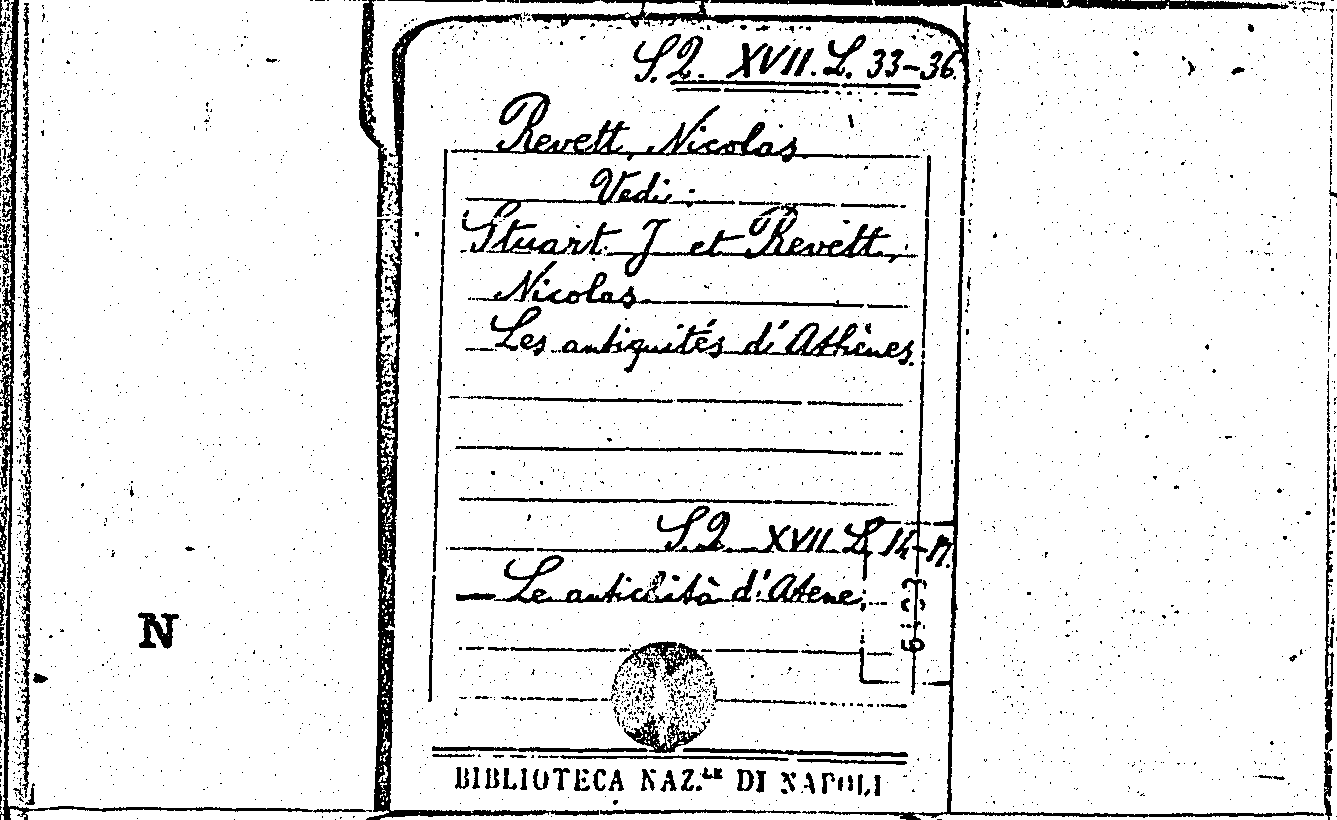 S.Q. XVII. L. 33-36.
Revett, Nicolas.
Vedi:
Stuart J et Revett,
Nicolas.
Les antiquités d'Athènes.
S.Q. XVII L. 14-17.
— Le antichità d'Atene.
N
BIBLIOTECA NAZ.LE DI NAPOLI